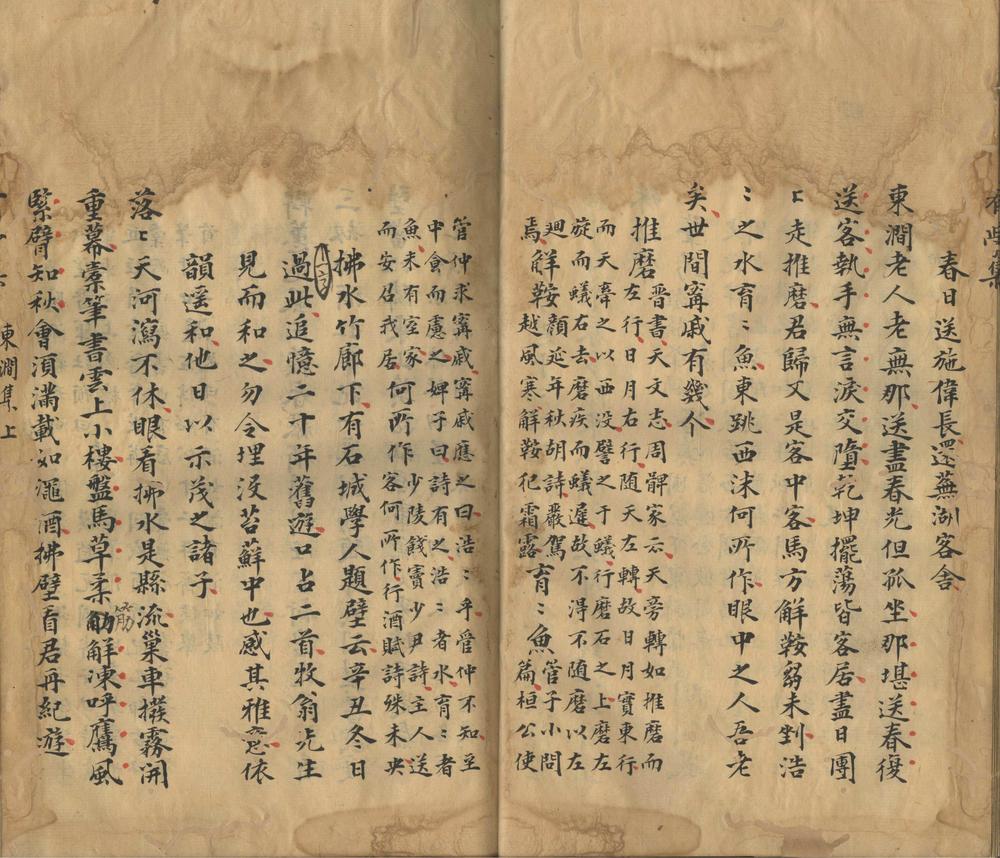 春日送施偉長還蕪湖客舍
東澗老人老無那送盡春光但孤坐那堪送春復
送客執手無言淚交墮乾坤擺蕩皆客居盡日團
〻走推磨君歸又是客中客馬方解鞍芻未剉浩
〻之水育〻魚東跳西沫何所作眼中之人吾老
矣世間甯戚有幾个
推磨晉書天文志周髀家云天旁轉如推磨而
左行日月右行随天左轉故日月實東行
而天牽之以西没譬之于蟻行磨石之上磨左
旋而蟻右去磨疾而蟻遲故不得不随磨以左
廻焉解鞍顔延年秋胡詩嚴駕
越風寒解鞍犯霜露育〻魚管子小問
篇桓公使
管仲求甯戚甯戚應之曰浩〻乎管仲不知至
中食而慮之婢子曰詩有之浩〻者水育〻者
魚未有室家何所作少陵餞竇少尹詩主人送
而安召我居客何所作行酒賦詩殊未央
拂水竹廊下有石城學人題壁云辛丑冬日
過此追憶二十年舊遊口占二首牧翁先生
見而和之勿令埋没苔蘚中也感其雅意依
韻遥和他日以示茂之諸子
落〻天河瀉不休眼看拂水是縣流巢車撥霧開
重幕橐筆書雲上小樓盤馬草柔觔筋解凍呼鷹風
緊臂知秋會須滿載如澠酒拂壁看君再紀遊
東澗集上